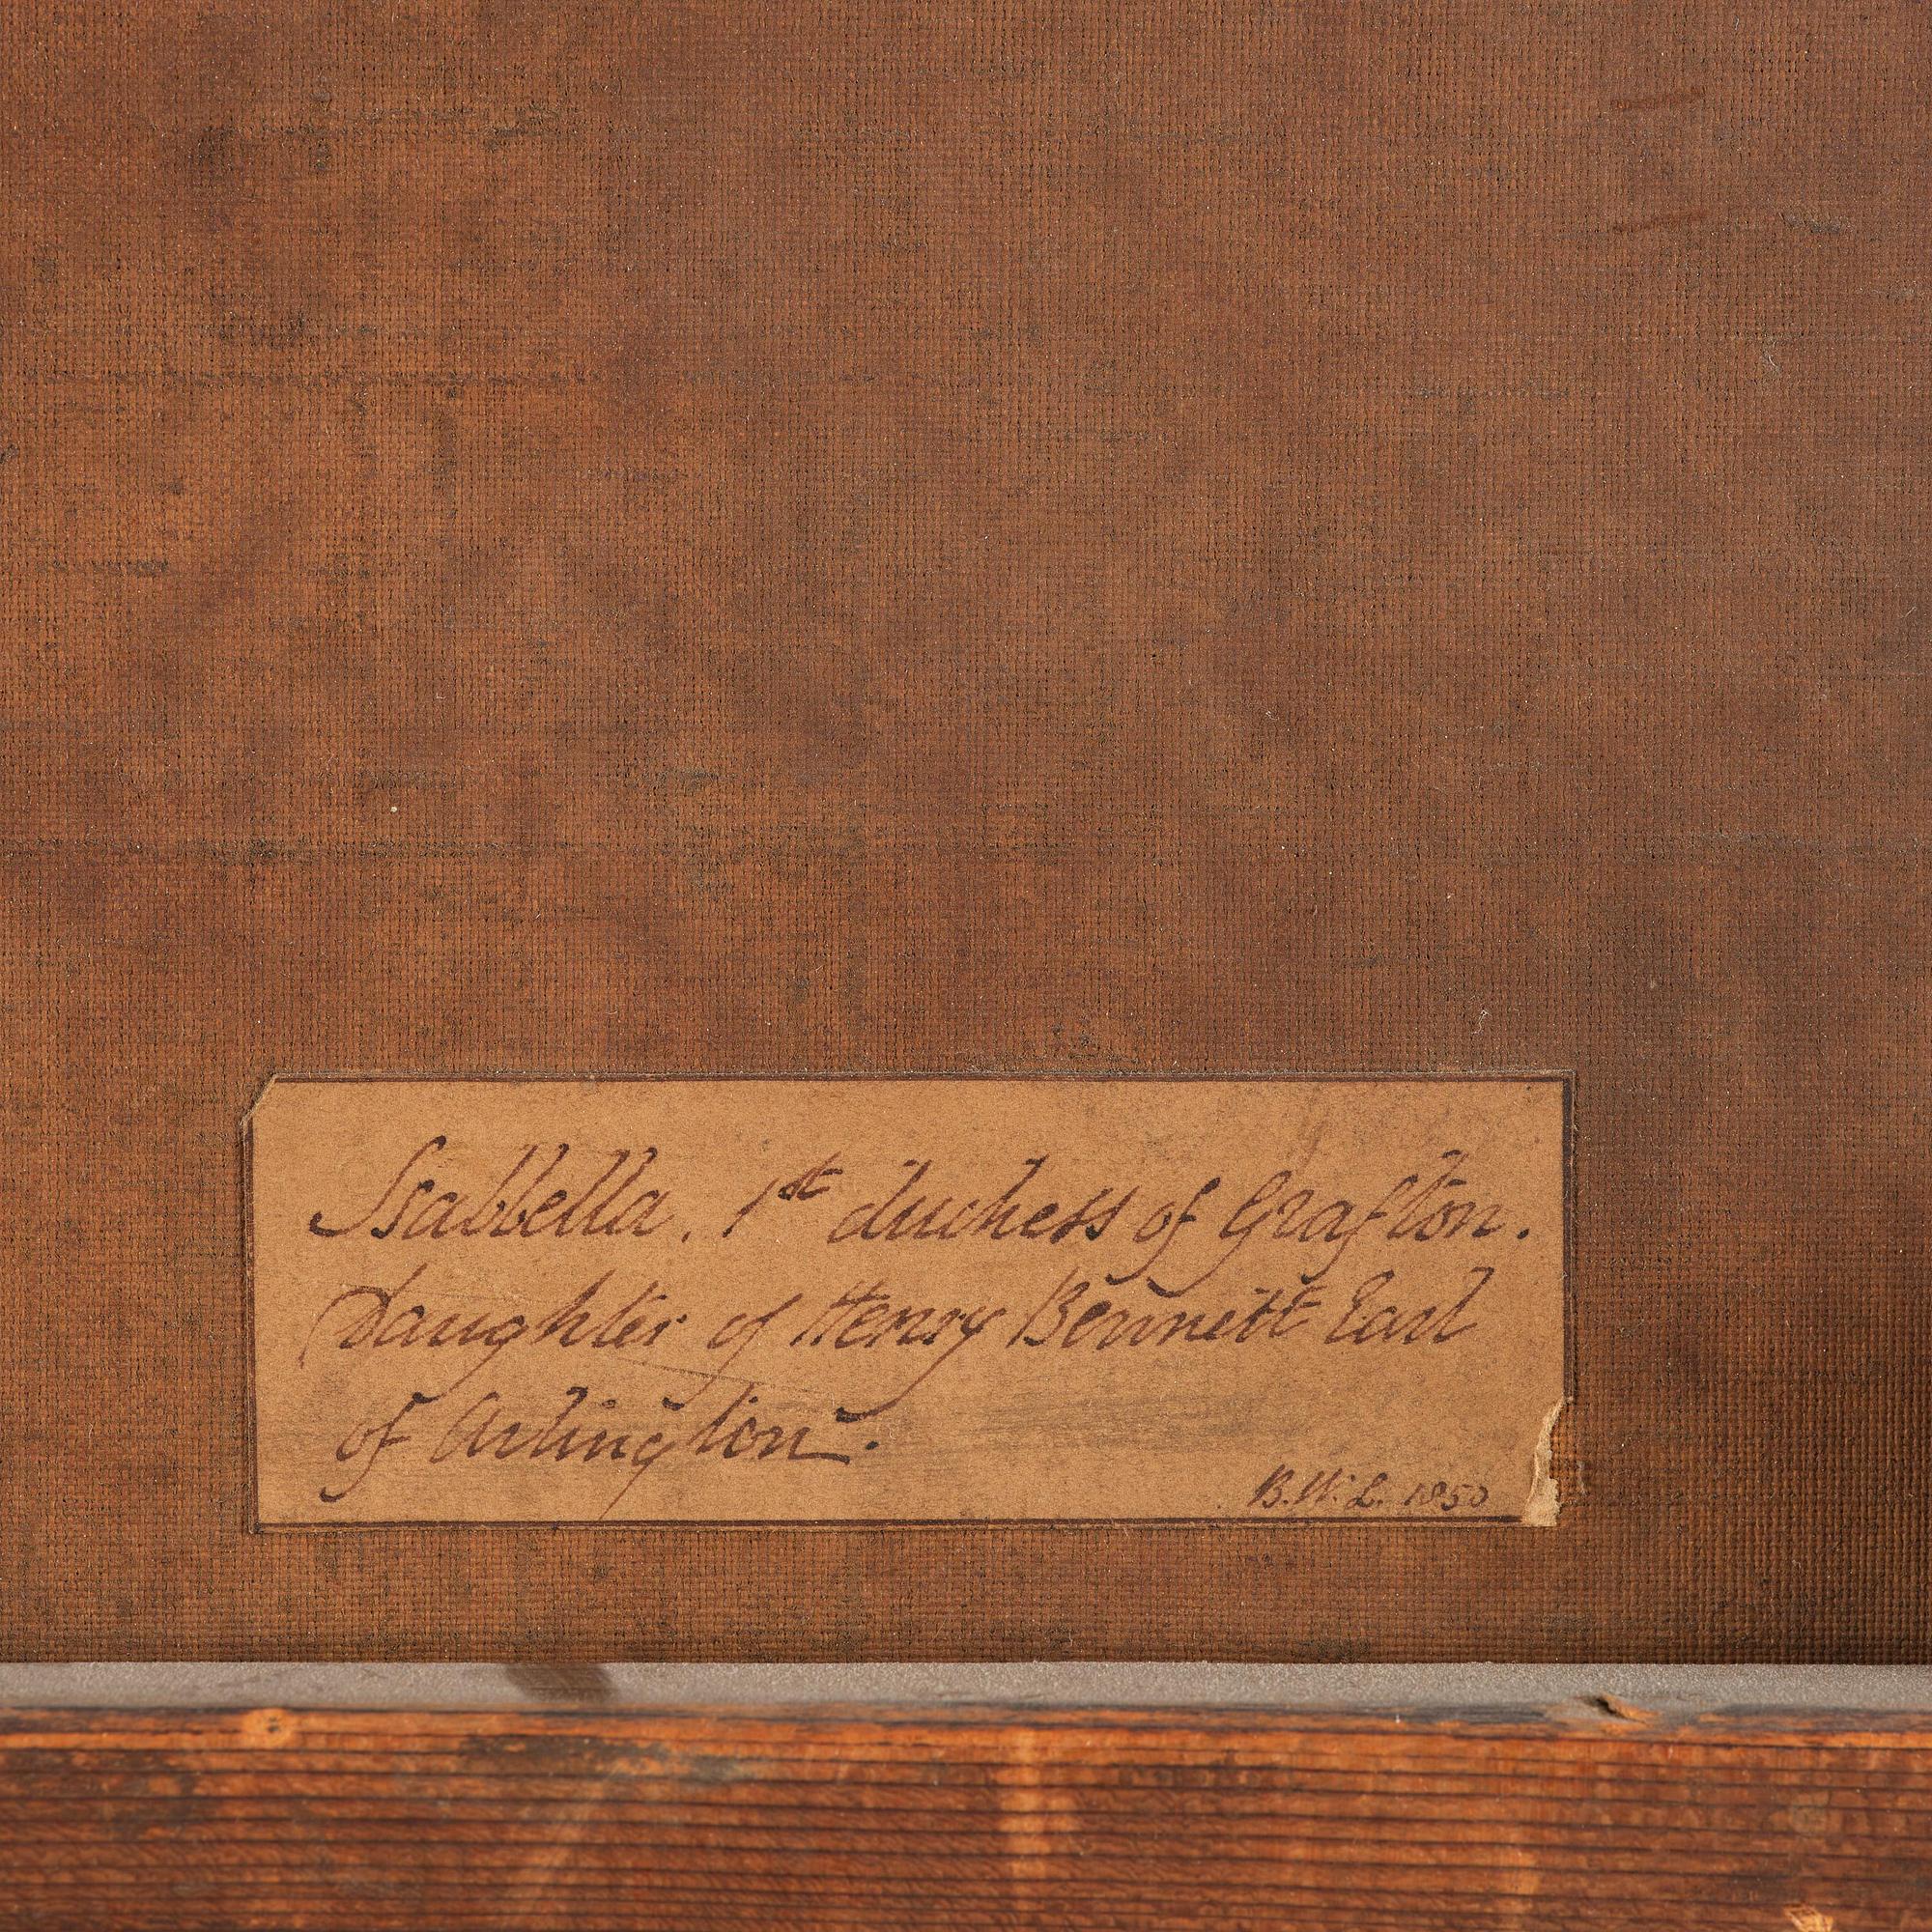 Isabbella, 1st duchess of Grafton.
Daughter of Henry Bennett Earl
of Arlington.
B.W.L. 1850